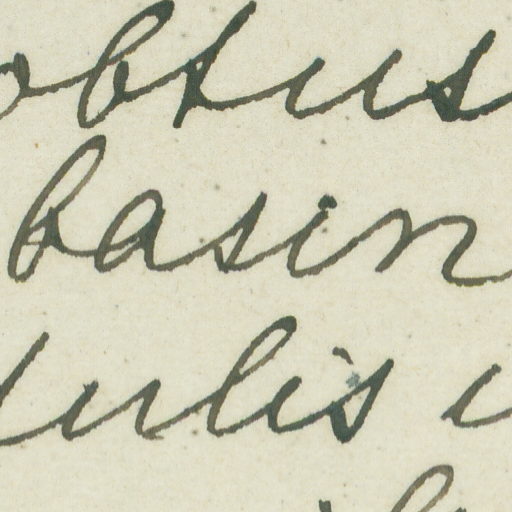 obtus
basin
ulis